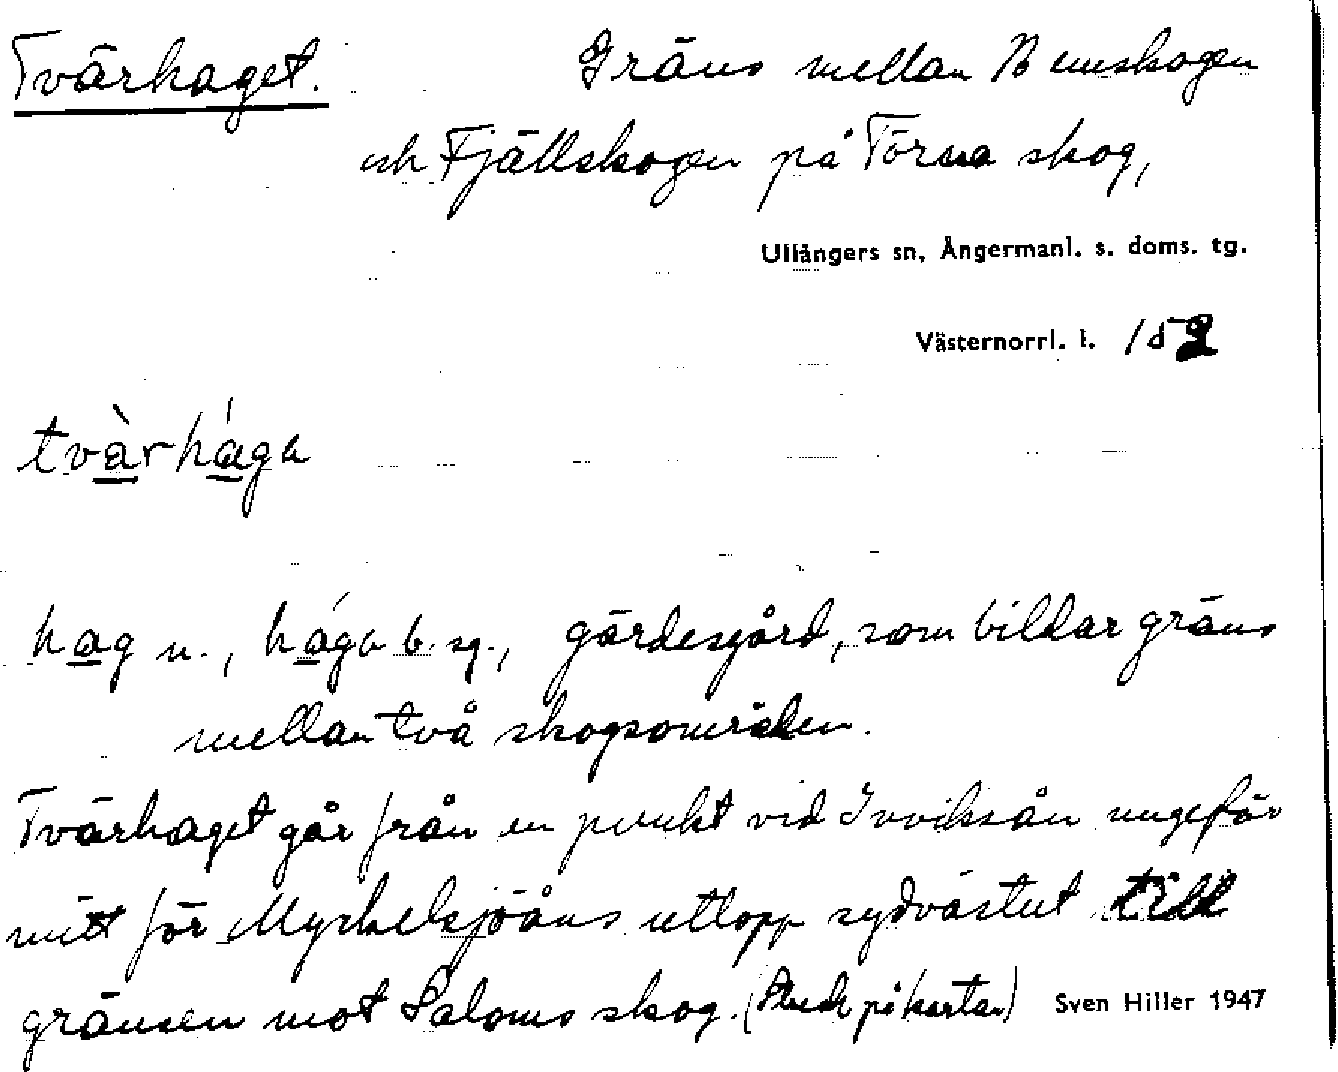 Tvärhaget. Gräns mellan Bunskogen
och Fjällskogen på Törsta skog,
Ullångers sn, Ångermanl. s. doms. tg.
Västernorrl. l. 152
tvàrhága
hag n., hága b. sg., gärdesgård, som bildar gräns
mellan två skogsområden.
Tvärhaget går från en punkt vid Inviksån ungefär
mitt för Myckelsjöåns utlopp sydvästut till
gränsen mot Saloms skog. (Streck på kartan) Sven Hiller 1947